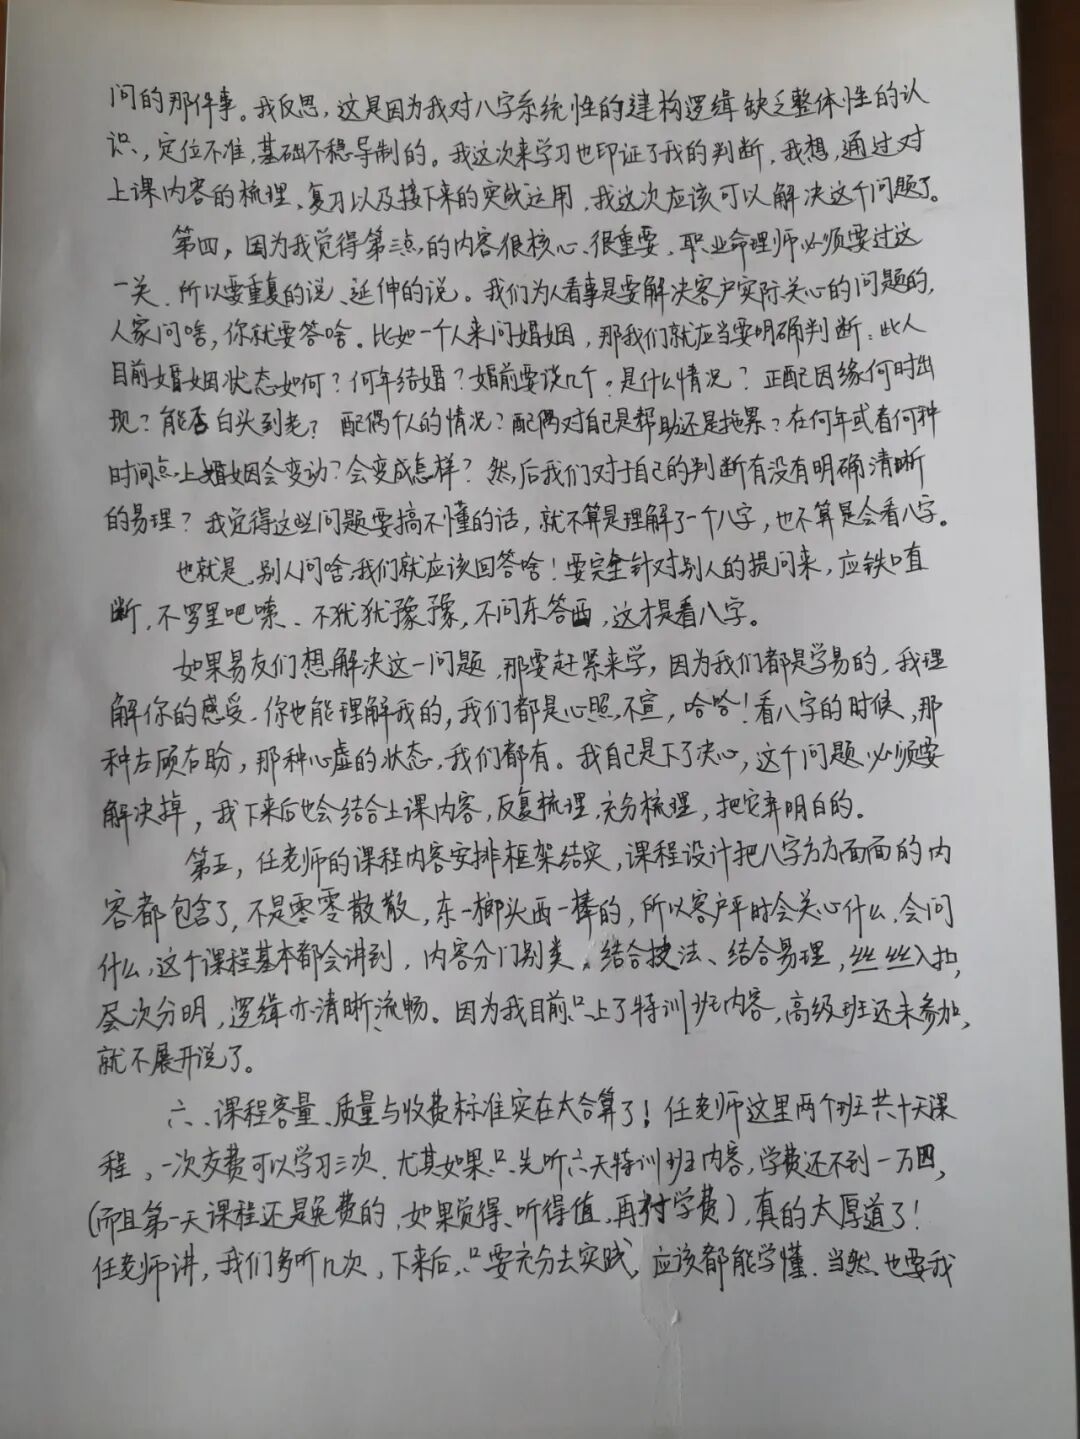 问的那件事。我反思，这是因为我对八字系统性的建构逻缉缺乏整体性的认
识、定位不准，基础不稳导制的。我这次来学习也印证了我的判断，我想，通过对
上课内容的梳理、复习以及接下来的实战运用，我这次应该可以解决这个问题了。
第四，因为我觉得第三点的内容很核心、很重要、职业命理师必须要过这
一关、所以要重复的说、延伸的说。我们为人看事是要解决客户实际关心的问题的，
人家问啥，你就要答啥。比如一个人来问婚姻，那我们就应当要明确判断：此人
目前婚姻状态如何？何年结婚？婚前要谈几个。是什么情况？正配因缘何时出
现？能否白头到老？配偶个人的情况？配偶对自己是帮助还是拖累？在何年或者何种
时间点上婚姻会变动？会变成怎样？然后我们对于自己的判断有没有明确清晰
的易理？我觉得这些问题要搞不懂的话，就不算是理解了一个八字，也不算是会看八字。
也就是，别人问啥，我们就应该回答啥！要完全针对别人的提问来，应铁口直
断，不罗里吧嗦、不犹犹豫豫，不问东答西，这才是看八字。
如果易友们想解决这一问题，那要赶紧来学，因为我们都是学易的，我理
解你的感受，你也能理解我的，我们都是心照不宣，哈哈！看八字的时候，那
种左顾右盼，那种心虚的状态，我们都有。我自己是下了决心，这个问题必须要
解决掉，我下来后也会结合上课内容，反复梳理，充分梳理，把它弄明白的。
第五，任老师的课程内容安排框架结实，课程设计把八字方方面面的内
容都包含了，不是零零散散，东一榔头西一棒的，所以客户平时会关心什么，会问
什么，这个课程基本都会讲到，内容分门别类，结合技法、结合易理，丝丝入扣，
层次分明，逻缉亦清晰流畅。因为我目前只上了特训班内容，高级班还未参加，
就不展开说了。
六、课程容量、质量与收费标准实在太合算了！任老师这里两个班共十天课
程，一次交费可以学习三次，尤其如果只先听六天特训班内容，学费还不到一万四，
（而且第一天课程还是免费的，如果觉得、听得值，再付学费），真的太厚道了！
任老师讲，我们多听几次，下来后，只要充分去实践，应该都能学懂，当然，也要我